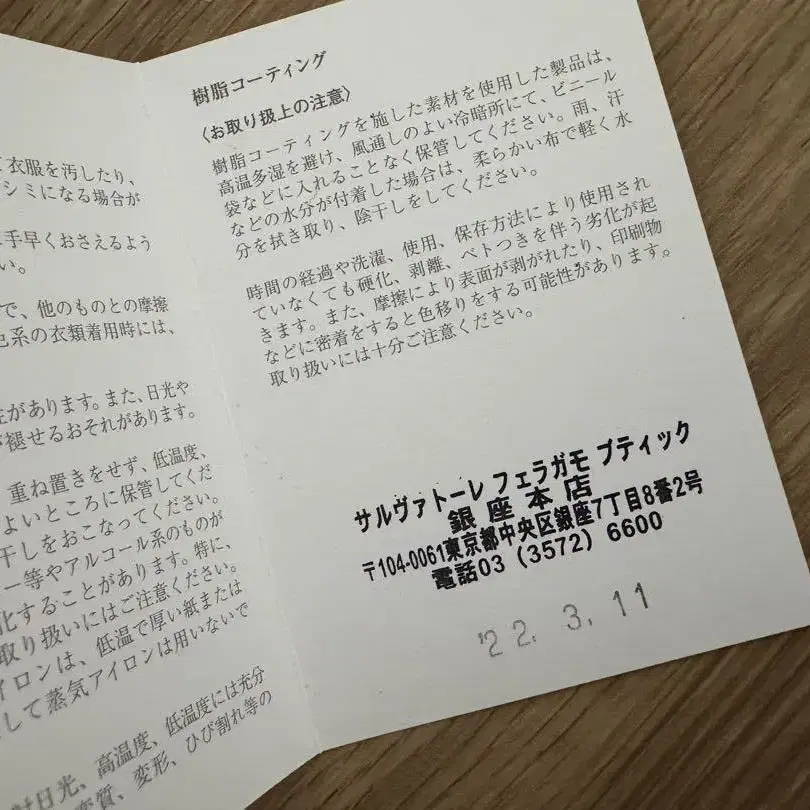 衣服を汚したり、
シミになる場合が
手早くおさえるよう
い。
で、他のものとの摩擦
色系の衣類着用時には、
があります。また、日光や
褪せるおそれがあります。
重ね置きをせず、低温度、
よいところに保管してくだ
干しをおこなってください。
ー等やアルコール系のものが
化することがあります。特に、
取り扱いにはご注意ください。
イロンは、低温で厚い紙または
して蒸気アイロンは用いないで
日光、高温度、低温度には充分
変質、変形、ひび割れ等の
樹脂コーティング
〈お取り扱上の注意〉
樹脂コーティングを施した素材を使用した製品は、
高温多湿を避け、風通しのよい冷暗所にて、ビニール
袋などに入れることなく保管してください。雨、汗
などの水分が付着した場合は、柔らかい布で軽く水
分を拭き取り、陰干しをしてください。
時間の経過や洗濯、使用、保存方法により使用され
ていなくても硬化、剥離、ベトつきを伴う劣化が起
きます。また、摩擦により表面が剥がれたり、印刷物
などに密着をすると色移りをする可能性があります。
取り扱いには十分ご注意ください。
サルヴァトーレ フェラガモ ブティック
銀座本店
〒104-0061東京都中央区銀座7丁目8番2号
電話03（3572）6600
'22. 3. 11